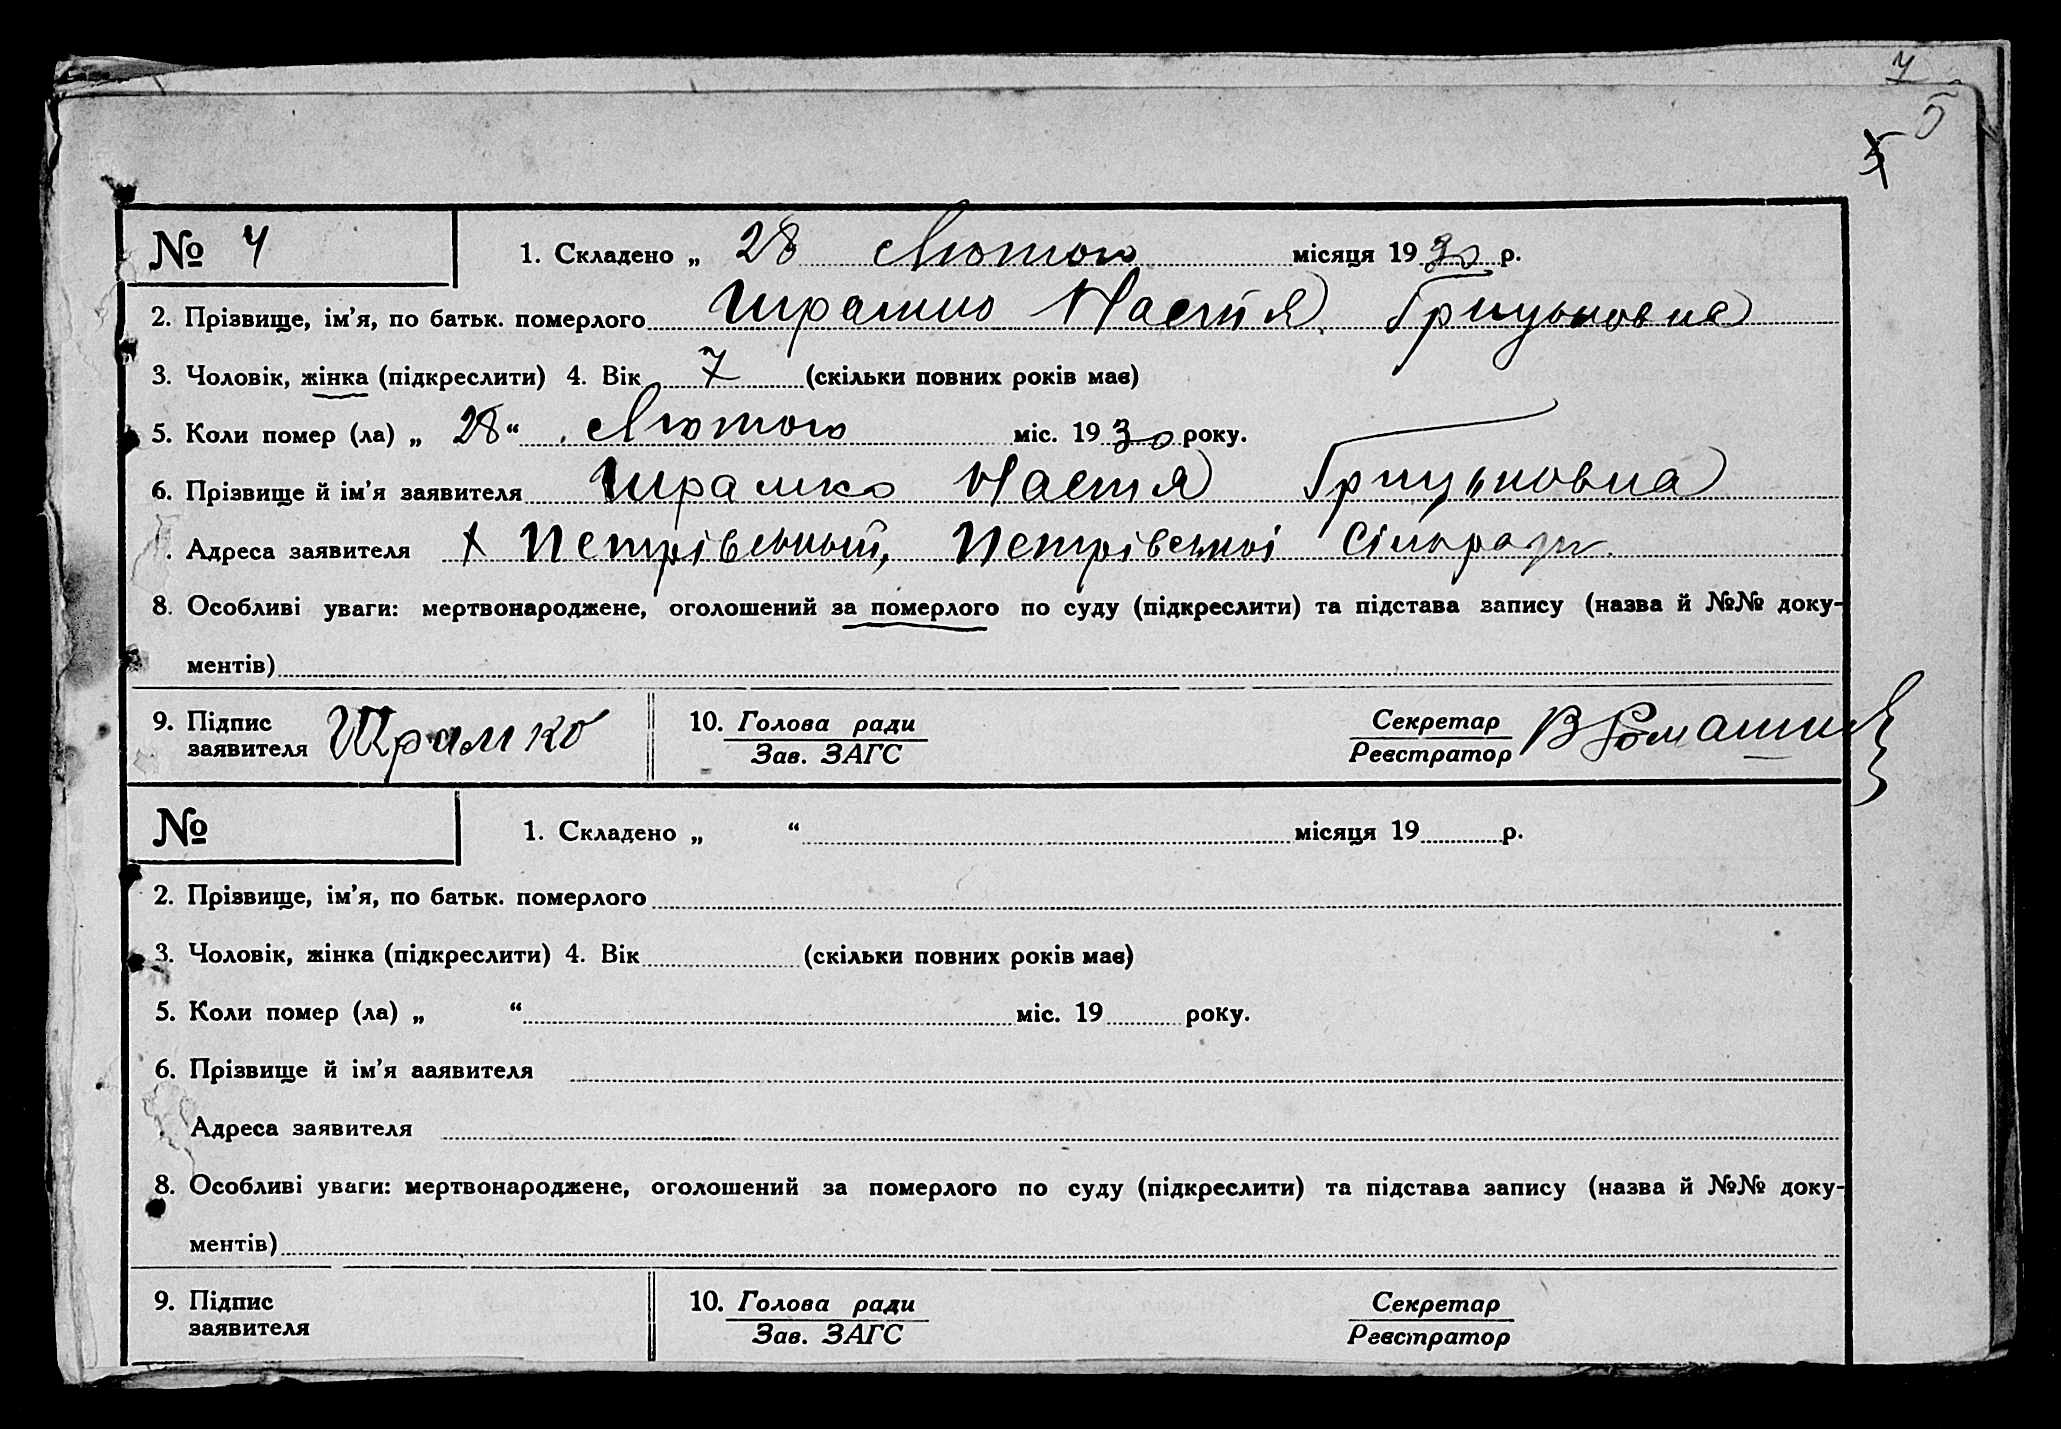 7
5
№ 4
1. Складено „ 28 Лютого місяця 1930 р.
2. Прізвище, ім’я, по батьк. померлого Шрамко Настя Грицьковна
3. Чоловік, жінка (підкреслити) 4. Вік 7 (скільки повних років має)
5. Коли помер (ла) „ 28 “ Лютого міс. 1930 року.
6. Прізвище й ім’я заявителя Шрамко Настя Грицьковна
. Адреса заявителя х Петрівський, Петрівської Сільради
8. Особливі уваги: мертвонароджене, оголошений за померлого по суду (підкреслити) та підстава запису (назва й №№ доку-
ментів)
9. Підпис заявителя Шрамко
10. Голова ради
Зав. ЗАГС
Секретар
Реєстратор
№
1. Складено „ “ місяця 19 р.
2. Прізвище, ім’я, по батьк. померлого
3. Чоловік, жінка (підкреслити) 4. Вік (скільки повних років має)
5. Коли помер (ла) „ “ міс. 19 року.
6. Прізвище й ім’я ааявителя
. Адреса заявителя
8. Особливі уваги: мертвонароджене, оголошений за померлого по суду (підкреслити) та підстава запису (назва й №№ доку-
ментів)
9. Підпис заявителя
10. Голова ради
Зав. ЗАГС
Секретар
Реєстратор